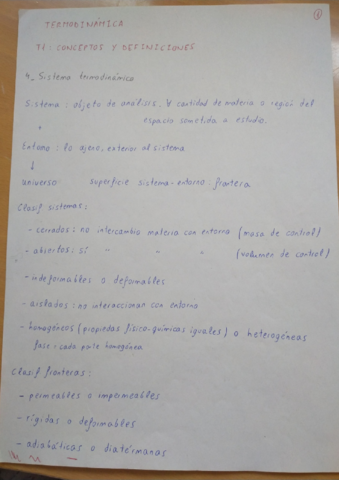 1
TERMODINÁMICA
T1: CONCEPTOS Y DEFINICIONES.
1. Sistema termodinámico
Sistema: objeto de análisis. cantidad de materia o región del
espacio sometida a estudio.
+
Entorno: lo ajeno, exterior al sistema
↓
universo superficie sistema-entorno: frontera
Clasif sistemas:
- cerrados: no intercambio materia con entorno (masa de control)
- abiertos: sí " " " (volumen de control)
- indeformables o deformables
- aislados: no interaccionan con entorno
- homogéneos (propiedas físico-químicas iguales) o heterogéneos
fase = cada parte homogénea
Clasif fronteras:
- permeables o impermeables
- rígidas o deformables
- adiabáticas o diatérmanas